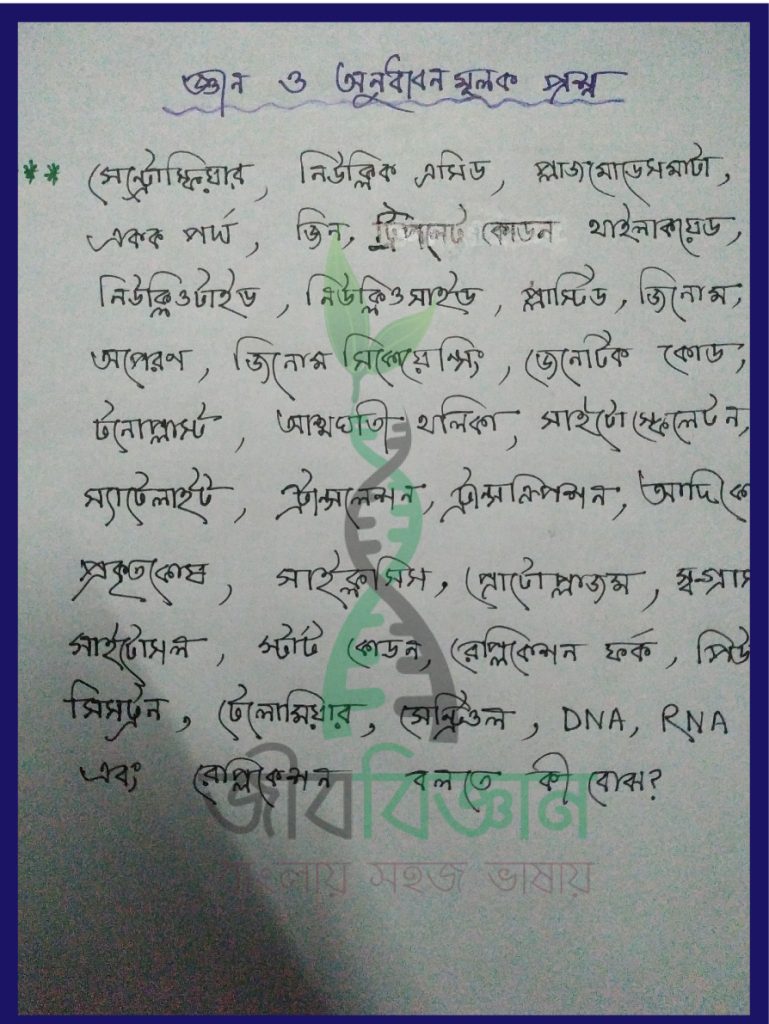 জ্ঞান ও অনুধাবন মূলক প্রশ্ন
** সেন্ট্রোস্ফিয়ার, নিউক্লিক এসিড, প্লাজমোডেসমাটা,
একক পর্দা, জিন, ট্রিপলেট কোডন থাইলাকয়েড,
নিউক্লিওটাইড, নিউক্লিওসাইড, প্লাস্টিড, জিনোম,
অপেরণ, জিনোম সিকোয়েন্সিং, জেনেটিক কোড,
টনোপ্লাস্ট, আত্মঘাতী থলিকা, সাইটোস্কেলেটন,
স্যাটেলাইট, ট্রান্সলেশন, ট্রান্সক্রিপশন, আদিকো
প্রকৃতকোষ, সাইক্লোসিস, প্রোটোপ্লাজম, স্ব-গ্রাস
সাইটোসল, স্টার্ট কোডন, রেপ্লিকেশন ফর্ক, পিউ
সিসট্রন, টেলোমিয়ার, সেন্ট্রিওল, DNA, RNA
এবং রেপ্লিকেশন বলতে কী বোঝ?
জীববিজ্ঞান
বাংলায় সহজ ভাষায়